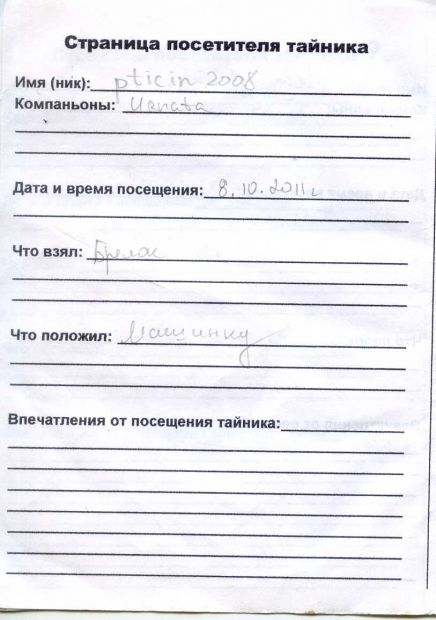 Страница посетителя тайника
Имя (ник): pticin 2008
Компаньоны:
Дата и время посещения: 8.10.2011г
Что взял: Брелок
Что положил: Машинку
Впечатления от посещения тайника: